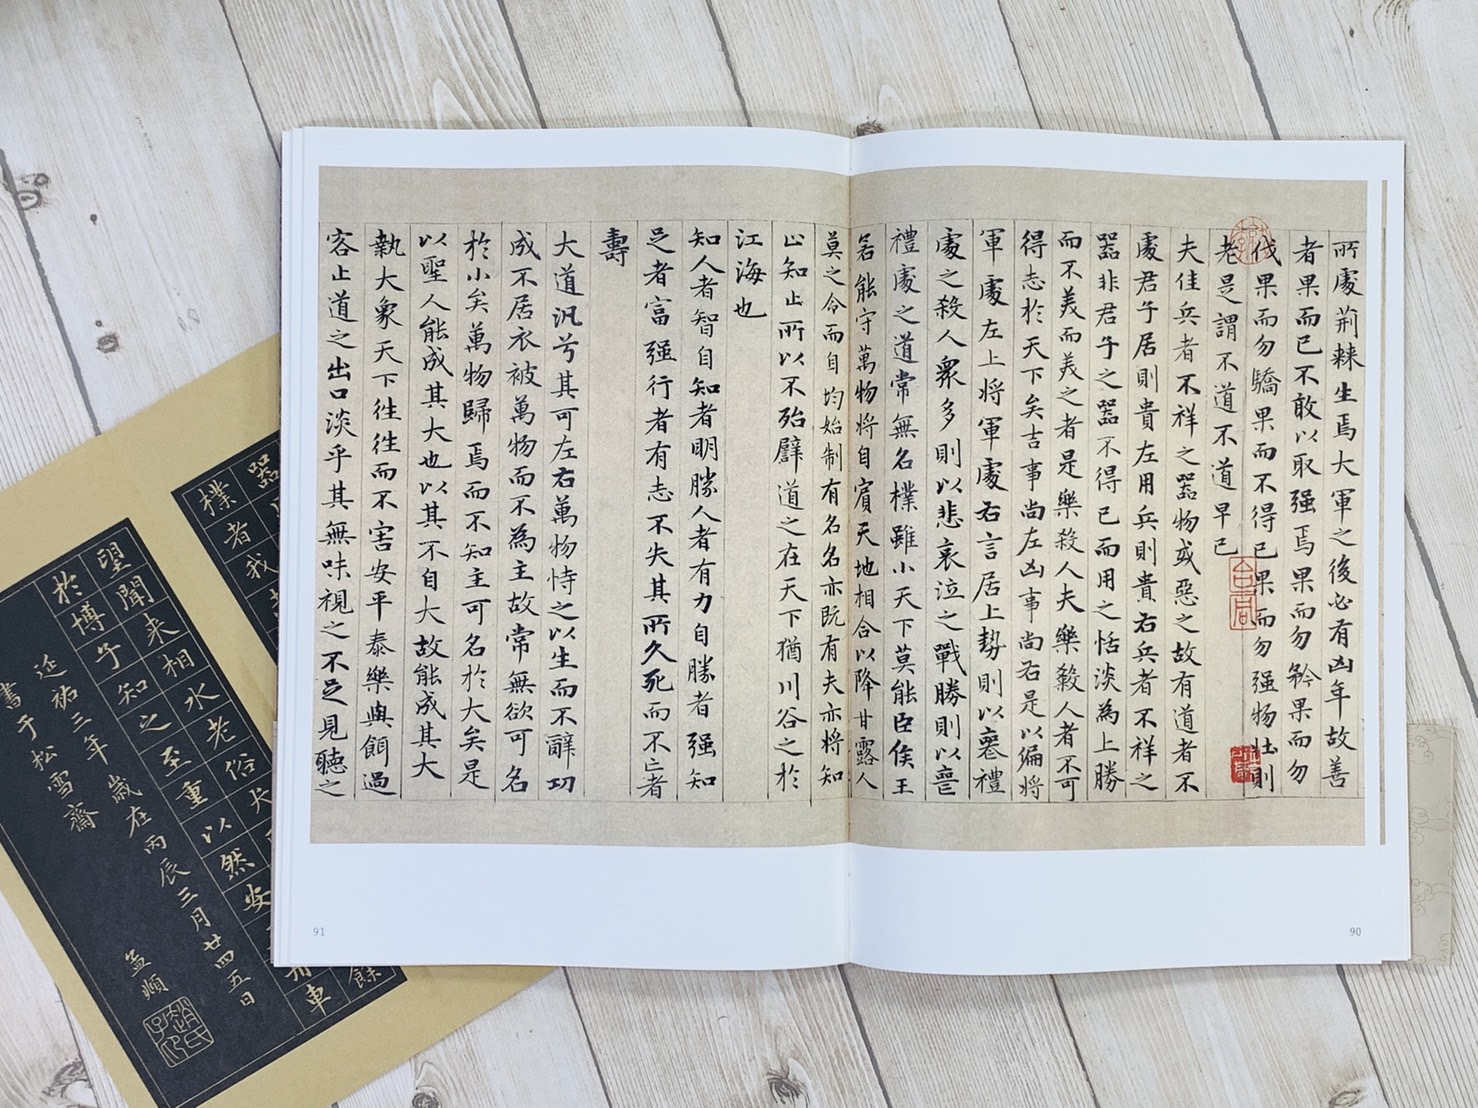 所處荊棘生焉大軍之後必有凶年故善
者果而已不敢以取强焉果而勿矜果而勿
伐果而勿驕果而不得已果而勿强物壯則
老是謂不道不道早已
夫佳兵者不祥之器物或惡之故有道者不
處君子居則貴左用兵則貴右兵者不祥之
器非君子之器不得已而用之恬淡為上勝
而不美而美之者是樂殺人夫樂殺人者不可
得志於天下矣吉事尚左凶事尚右是以偏將
軍處左上將軍處右言居上勢則以喪禮
處之殺人衆多則以悲哀泣之戰勝則以喪
禮處之道常無名樸雖小天下莫能臣侯王
若能守萬物將自賓天地相合以降甘露人
莫之令而自均始制有名名亦既有夫亦將知
止知止所以不殆譬道之在天下猶川谷之於
江海也
知人者智自知者明勝人者有力自勝者强知
足者富强行者有志不失其所久死而不亡者
壽
大道汎兮其可左右萬物恃之以生而不辭功
成不居衣被萬物而不為主故常無欲可名
於小矣萬物歸焉而不知主可名於大矣是
以聖人能成其大也以其不自大故能成其大
執大象天下往往而不害安平泰樂與餌過
客止道之出口淡乎其無味視之不足見聽之
90
91
器
樸者我
望聞来相水老俗犬
於博乎知之至重以然安
餘
車
延祐三年歲在丙辰三月廿四五日
書于松雪齋
孟頫
趙氏子昂